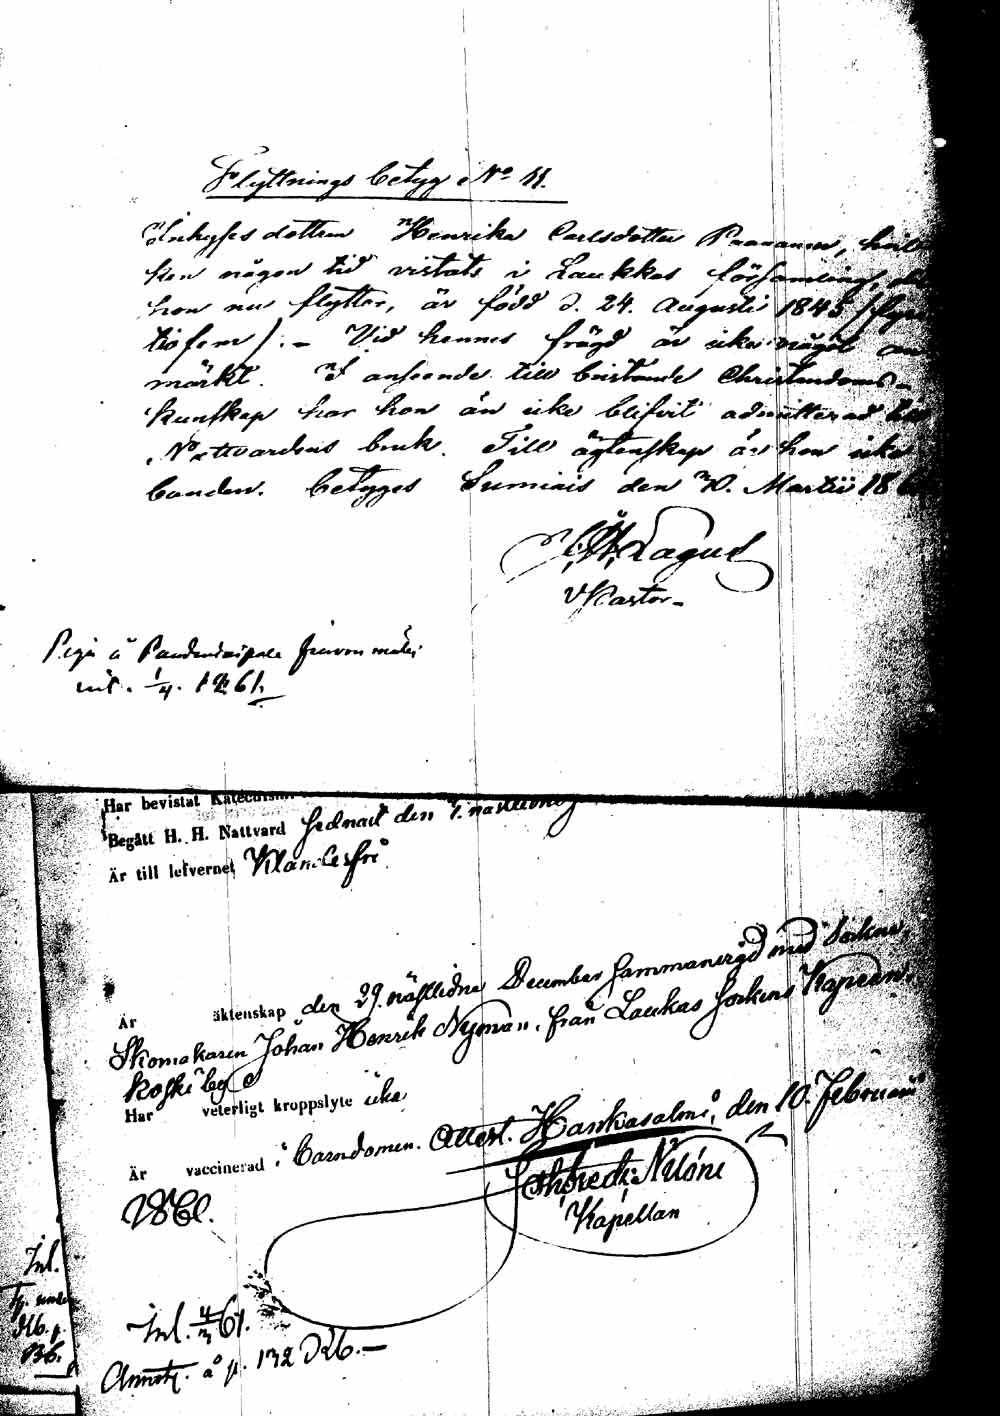 Flyttnings betyg No 11.
Inhyses dottren Henrika Carlsdotter Paananen, hvil
ken någon tid vistats i Laukkas församling, dit
hon nu flyttar, är född d. 24. Augusti 1845 /fyra
tiofem/. - Vid hennes frägd är icke något an
märkt. I anseende till bristande Christendoms-
kunskap har hon än icke blifvit admitterad till
Nattvardens bruk. Till ägtenskap är hon icke
bunden. betygas Sumiais den 30. Martii 186
Lagus
V Pastor-
Piga å
inl. 1/4. 1861.
Har bevistat Katechismi
Begått H. H. Nattvard sednast den
Är till lefvernet Klanderfri
Är äktenskap den 29. nästledne December sammanvigd med Sockne
Skomakaren Johan Henrik Nyman, från Laukas Sockens
koski by
Har veterligt kroppslyte icke
Är vaccinerad i barndomen. Attest. Hankasalmi, den 10. Februarii
1861.
Kapellan
Inl.
Inl. 4/3 61.
Annot. å p. 132 Kb.-